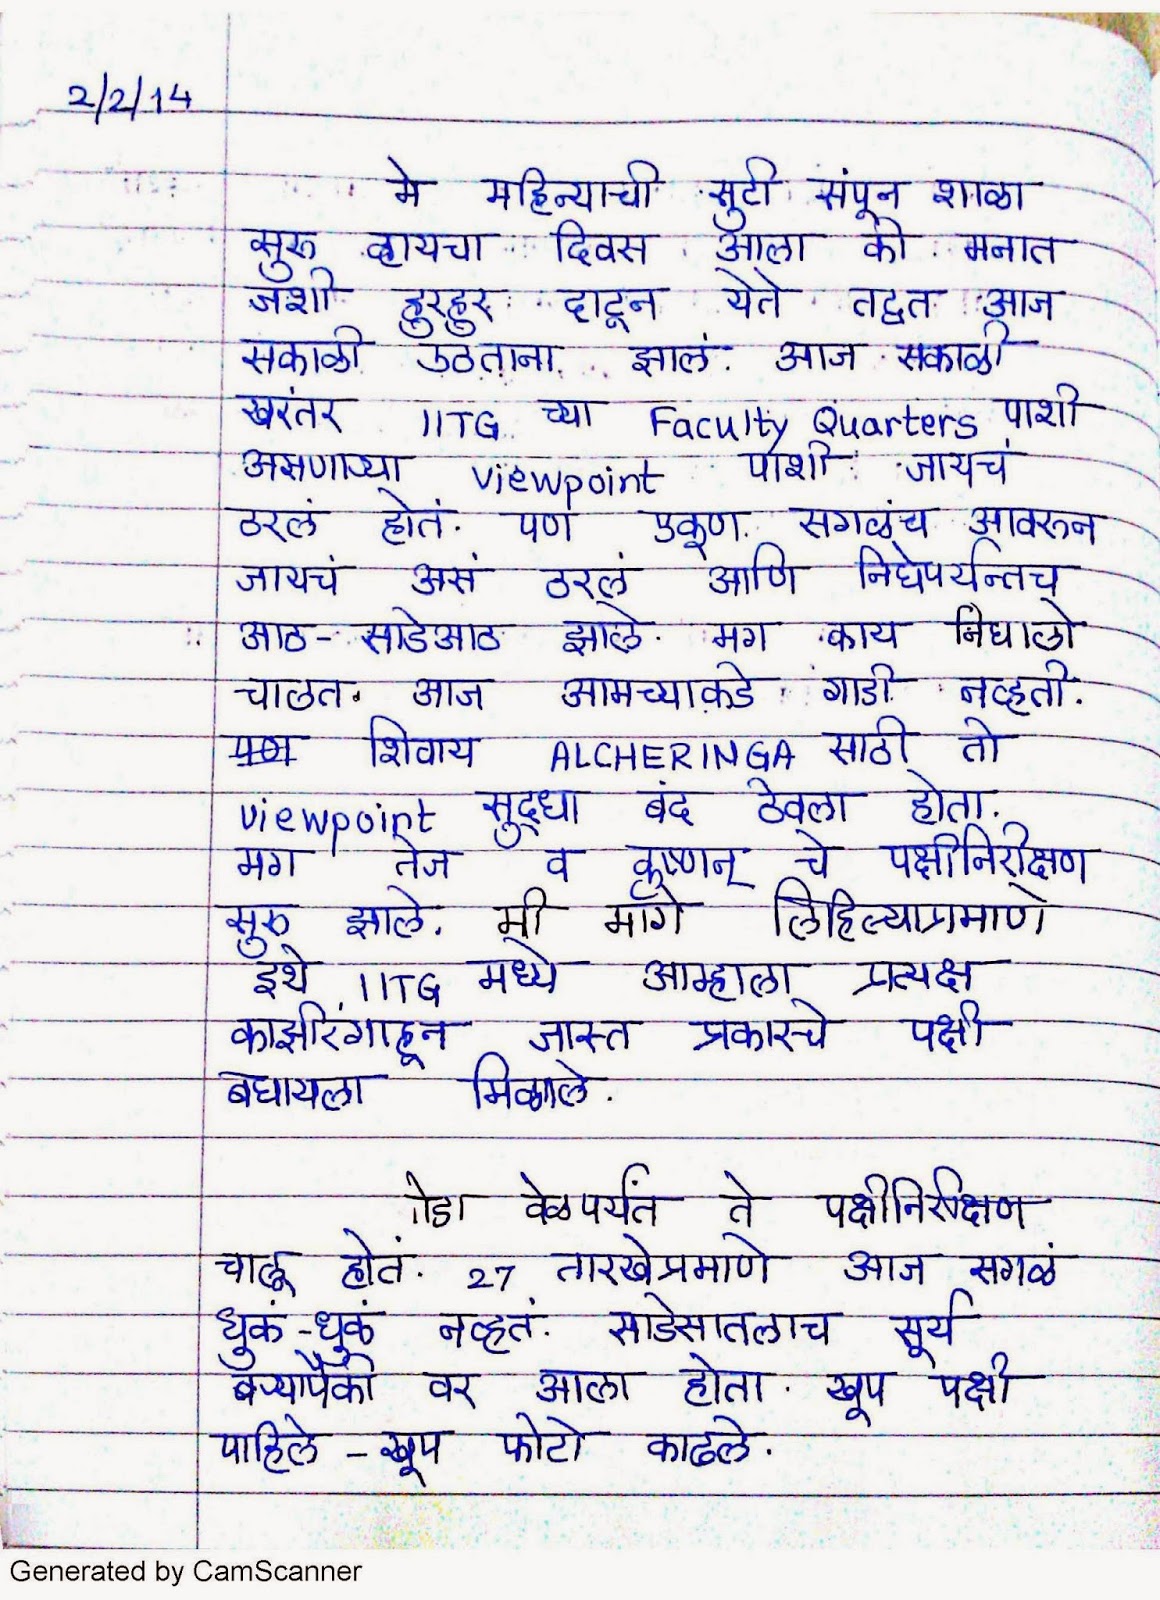 2/2/14
मे महिन्याची सुटी संपून शाळा
सुरु व्हायचा दिवस आला की मनात
जशी हुरहुर दाटून येते तद्वत आज
सकाळी उठताना झालं. आज सकाळी
खरंतर IITG च्या Faculty Quarters पाशी
असणाऱ्या viewpoint पाशी जायचं
ठरलं होतं. पण एकूण सगळंच आवरून
जायचं असं ठरलं आणि निघेपर्यन्तच
आठ - साडेआठ झाले. मग काय निघालो
चालत. आज आमच्याकडे गाडी नव्हती.
पण शिवाय ALCHERINGA साठी तो
viewpoint सुद्धा बंद ठेवला होता.
मग तेज व कृष्णन् चे पक्षीनिरीक्षण
सुरु झाले. मी मागे लिहिल्याप्रमाणे
इथे IITG मध्ये आम्हाला प्रत्यक्ष
काझीरंगाहून जास्त प्रकारचे पक्षी
बघायला मिळाले.
वेळपर्यंत ते पक्षीनिरीक्षण
चालू होतं. 27 तारखेप्रमाणे आज सगळं
धुकं - धुकं नव्हतं. साडेसातलाच सूर्य
बऱ्यापैकी वर आला होता. खूप पक्षी
पाहिले - खूप फोटो काढले.
Generated by CamScanner